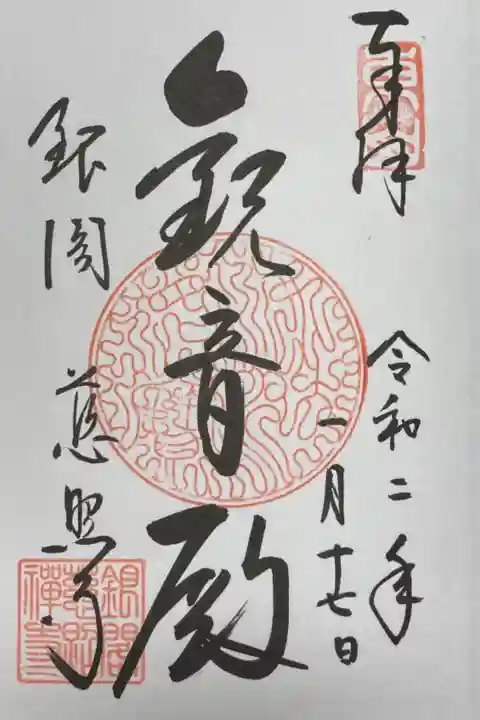 奉拝
令和二年
一月十七日
観音殿
銀閣 慈照寺
銀閣慈照禅寺